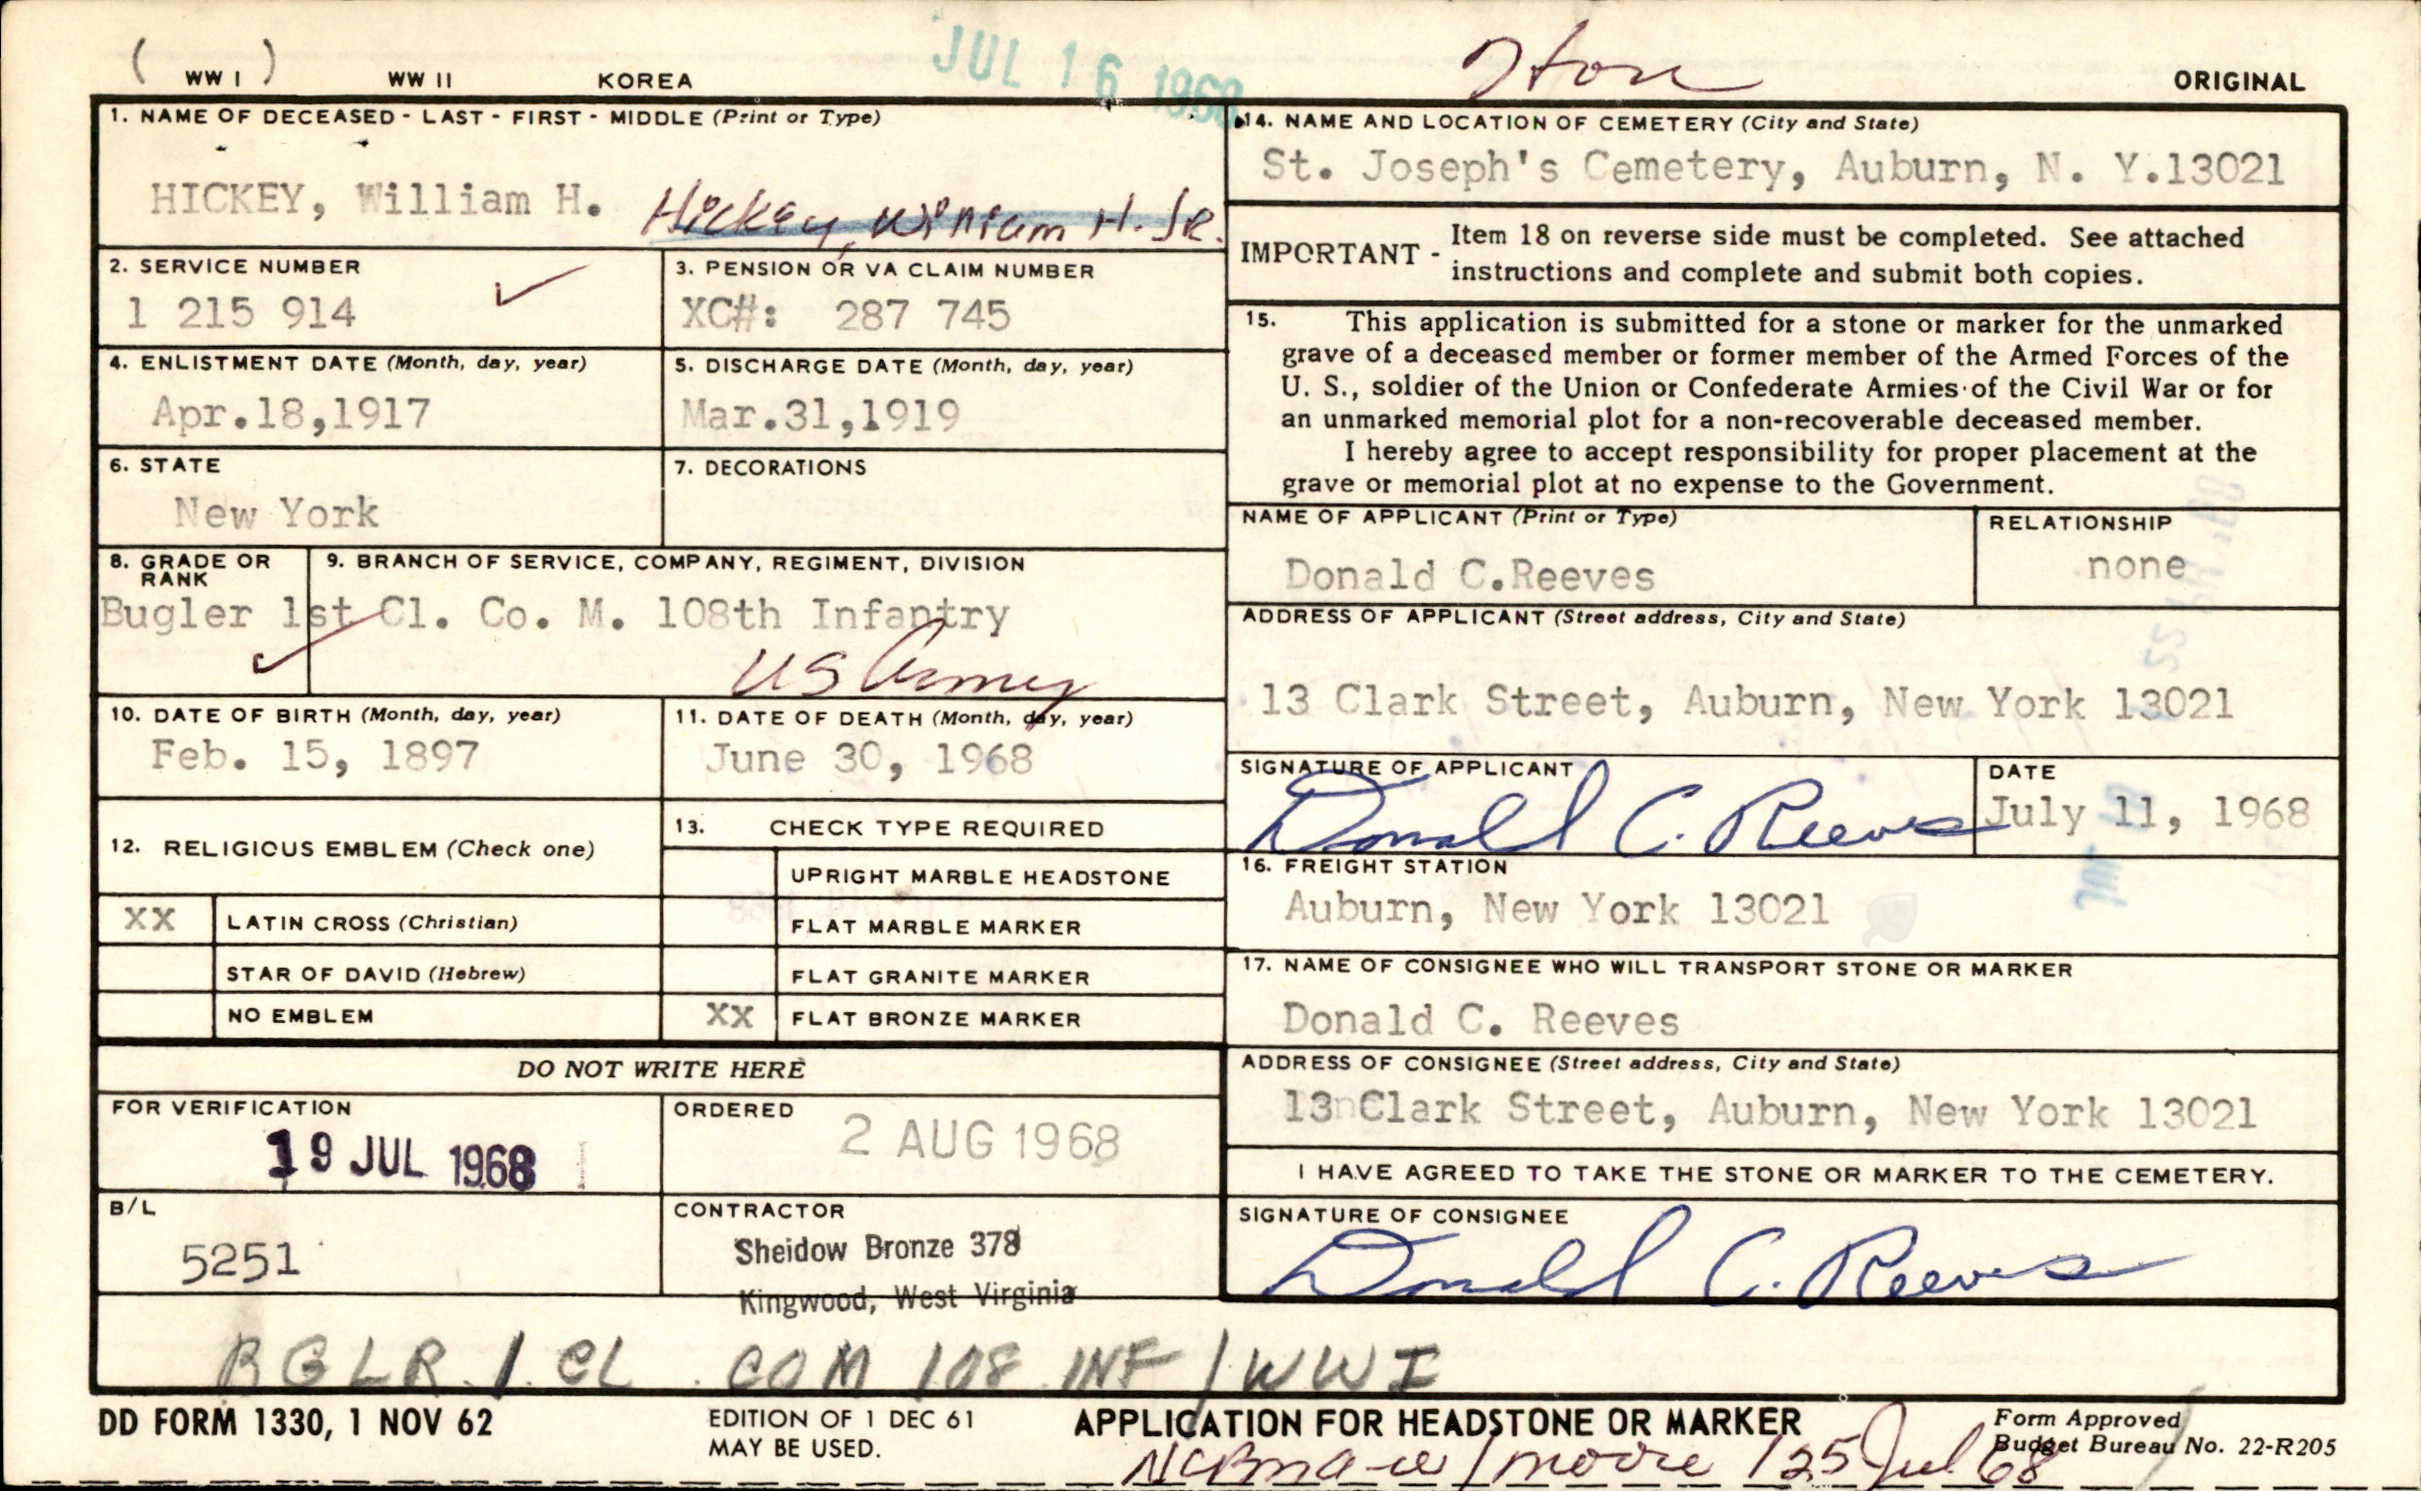 ( WW I ) WW II KOREA JUL 16 1968 Hon ORIGINAL
1. NAME OF DECEASED - LAST - FIRST - MIDDLE (Print or Type)
HICKEY, William H. Hickey, William H. Sr.
2. SERVICE NUMBER
1 215 914
3. PENSION OR VA CLAIM NUMBER
XC#: 287 745
4. ENLISTMENT DATE (Month, day, year)
Apr.18,1917
5. DISCHARGE DATE (Month, day, year)
Mar.31,1919
6. STATE
New York
7. DECORATIONS
8. GRADE OR
RANK
9. BRANCH OF SERVICE, COMPANY, REGIMENT, DIVISION
Bugler 1st Cl. Co. M. 108th Infantry
US Army
10. DATE OF BIRTH (Month, day, year)
Feb. 15, 1897
11. DATE OF DEATH (Month, day, year)
June 30, 1968
12. RELIGIOUS EMBLEM (Check one)
XX LATIN CROSS (Christian)
STAR OF DAVID (Hebrew)
NO EMBLEM
13. CHECK TYPE REQUIRED
UPRIGHT MARBLE HEADSTONE
FLAT MARBLE MARKER
FLAT GRANITE MARKER
XX FLAT BRONZE MARKER
DO NOT WRITE HERE
FOR VERIFICATION
19 JUL 1968
ORDERED
2 AUG 1968
B/L
5251
CONTRACTOR
Sheidow Bronze 378
Kingwood, West Virginia
14. NAME AND LOCATION OF CEMETERY (City and State)
St. Joseph's Cemetery, Auburn, N. Y.13021
IMPORTANT - Item 18 on reverse side must be completed. See attached
instructions and complete and submit both copies.
15. This application is submitted for a stone or marker for the unmarked
grave of a deceased member or former member of the Armed Forces of the
U. S., soldier of the Union or Confederate Armies of the Civil War or for
an unmarked memorial plot for a non-recoverable deceased member.
I hereby agree to accept responsibility for proper placement at the
grave or memorial plot at no expense to the Government.
NAME OF APPLICANT (Print or Type)
Donald C.Reeves
RELATIONSHIP
none
ADDRESS OF APPLICANT (Street address, City and State)
13 Clark Street, Auburn, New York 13021
SIGNATURE OF APPLICANT
Donald C. Reeves
DATE
July 11, 1968
16. FREIGHT STATION
Auburn, New York 13021
17. NAME OF CONSIGNEE WHO WILL TRANSPORT STONE OR MARKER
Donald C. Reeves
ADDRESS OF CONSIGNEE (Street address, City and State)
13 Clark Street, Auburn, New York 13021
I HAVE AGREED TO TAKE THE STONE OR MARKER TO THE CEMETERY.
SIGNATURE OF CONSIGNEE
Donald C. Reeves
BGLR 1 CL COM 108 INF / WWI
DD FORM 1330, 1 NOV 62
EDITION OF 1 DEC 61
MAY BE USED.
APPLICATION FOR HEADSTONE OR MARKER
Form Approved
Budget Bureau No. 22-R205
/ moore / 25 Jul 68